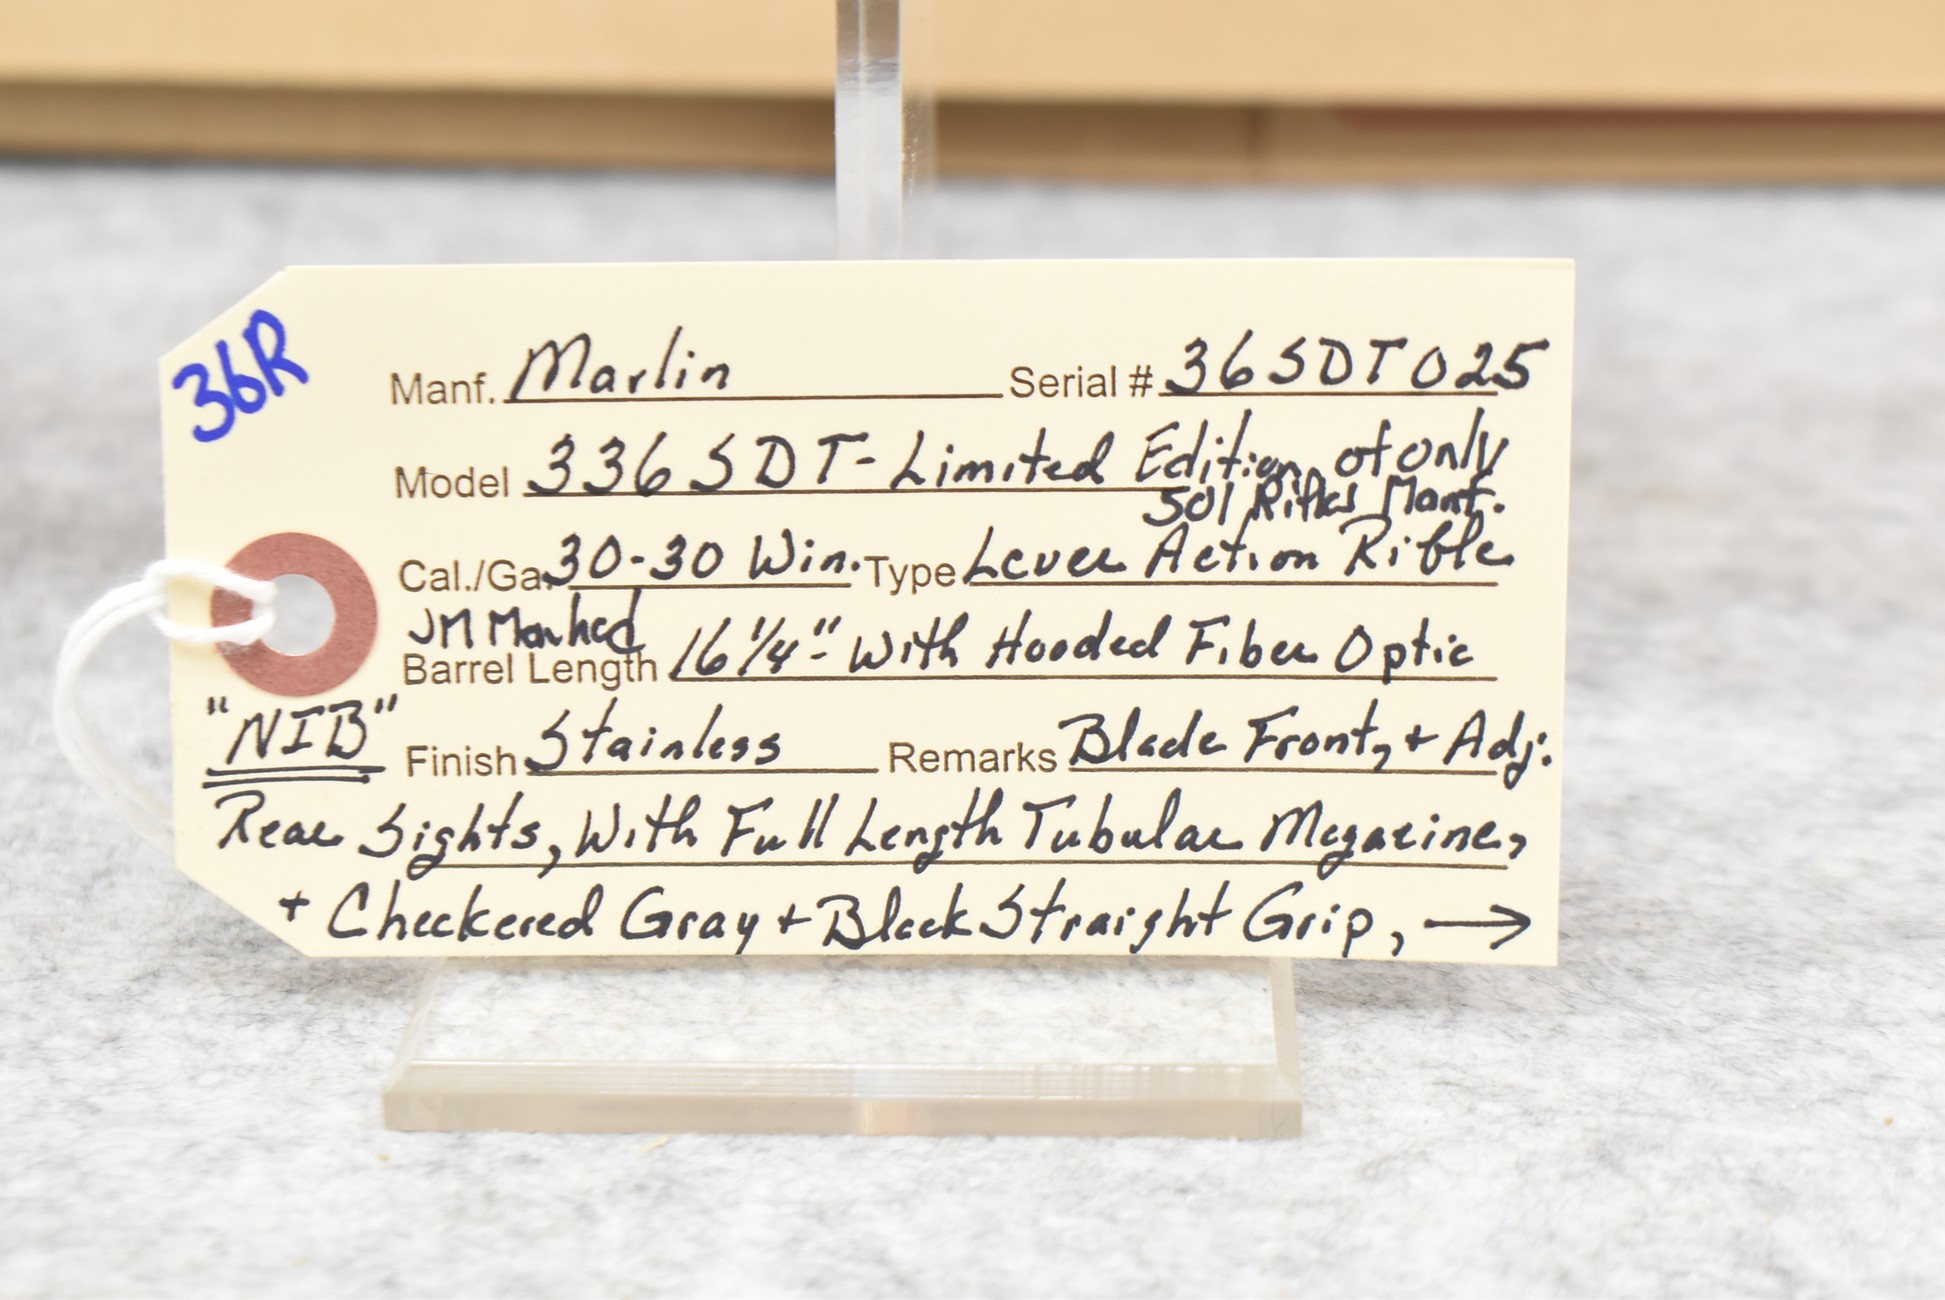 36R
Manf. Marlin Serial # 36SDT025
Model 336SDT-Limited Edition, of only
501 Rifles Manf.
Cal./Ga. 30-30 Win. Type Lever Action Rifle
JM Marked
Barrel Length 16 1/4"- With Hooded Fiber Optic
"NIB" Finish Stainless Remarks Blade Front, + Adj.
Rear Sights, With Full Length Tubular Magazine,
+ Checkered Gray + Black Straight Grip, →